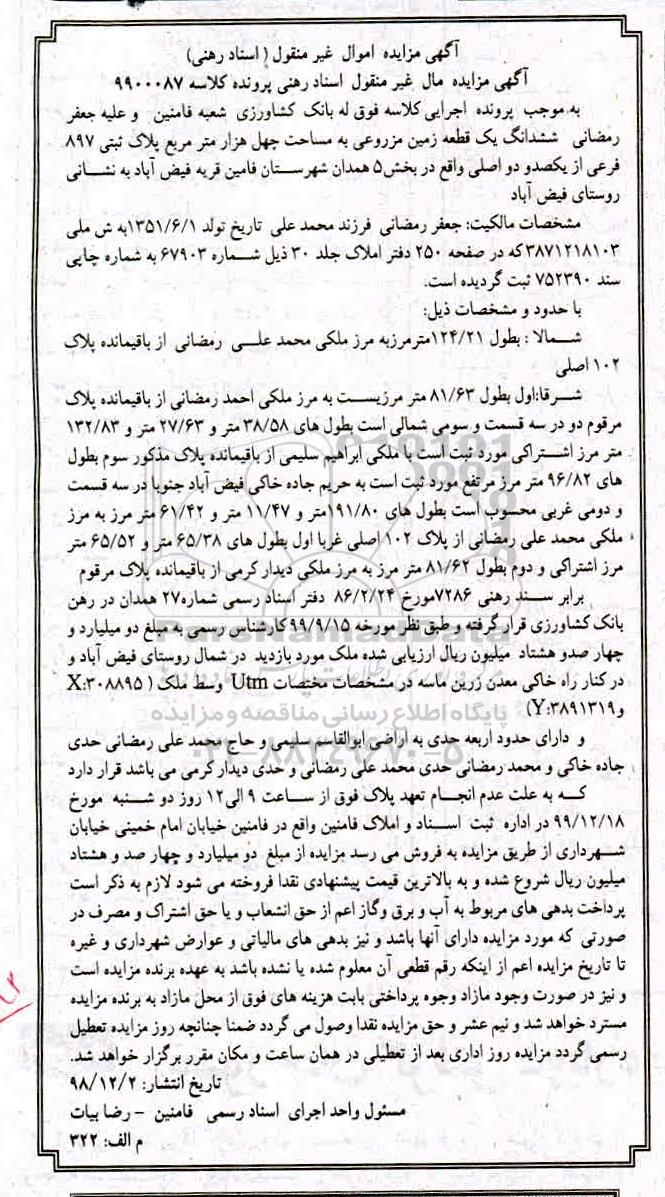 آگهی مزایده اموال غیر منقول (اسناد رهنی)
آگهی مزایده مال غیر منقول اسناد رهنی پرونده کلاسه ۹۹۰۰۰۸۷
به موجب پرونده اجرایی کلاسه فوق له بانک کشاورزی شعبه فامنین و علیه جعفر
رمضانی ششدانگ یک قطعه زمین مزروعی به مساحت چهل هزار متر مربع پلاک ثبتی ۸۹۷
فرعی از یکصدو دو اصلی واقع در بخش۵ همدان شهرستان فامین قریه فیض آباد به نشانی
روستای فیض آباد
مشخصات مالکیت: جعفر رمضانی فرزند محمد علی تاریخ تولد ۱۳۵۱/۶/۱به ش ملی
۳۸۷۱۲۱۸۱۰۳که در صفحه ۲۵۰ دفتر املاک جلد ۳۰ ذیل شماره ۶۷۹۰۳ به شماره چاپی
سند ۷۵۲۳۹۰ ثبت گردیده است.
با حدود و مشخصات ذیل:
شمالا : بطول ۱۲۴/۲۱مترمرزبه مرز ملکی محمد علی رمضانی از باقیمانده پلاک
۱۰۲ اصلی
شرقا:اول بطول ۸۱/۶۳ متر مرزیست به مرز ملکی احمد رمضانی از باقیمانده پلاک
مرقوم دو در سه قسمت و سومی شمالی است بطول های ۳۸/۵۸ متر و ۲۷/۶۳ متر و ۱۳۲/۸۳
متر مرز اشتراکی مورد ثبت است با ملکی ابراهیم سلیمی از باقیمانده پلاک مذکور سوم بطول
های ۹۶/۸۲ متر مرز مرتفع مورد ثبت است به حریم جاده خاکی فیض آباد جنوبا در سه قسمت
و دومی غربی محسوب است بطول های ۱۹۱/۸۰متر و ۱۱/۴۷ متر و ۶۱/۴۲ متر مرز به مرز
ملکی محمد علی رمضانی از پلاک ۱۰۲ اصلی غربا اول بطول های ۶۵/۳۸ متر و ۶۵/۵۲ متر
مرز اشتراکی و دوم بطول ۸۱/۶۲ متر مرز به مرز ملکی دیدار کرمی از باقیمانده پلاک مرقوم
برابر سند رهنی ۷۲۸۶مورخ ۸۶/۲/۲۴ دفتر اسناد رسمی شماره۲۷ همدان در رهن
بانک کشاورزی قرار گرفته و طبق نظر مورخه ۹۹/۹/۱۵ کارشناس رسمی به مبلغ دو میلیارد و
چهار صدو هشتاد میلیون ریال ارزیابی شده ملک مورد بازدید در شمال روستای فیض آباد و
در کنار راه خاکی معدن زرین ماسه در مشخصات مختصات Utm وسط ملک ( X:۳۰۸۸۹۵
و۳۸۹۱۳۱۹:Y)
و دارای حدود اربعه حدی به اراضی ابوالقاسم سلیمی و حاج محمد علی رمضانی حدی
جاده خاکی و محمد رمضانی حدی محمد علی رمضانی و حدی دیدار کرمی می باشد قرار دارد
که به علت عدم انجام تعهد پلاک فوق از ساعت ۹ الی۱۲ روز دو شنبه مورخ
۹۹/۱۲/۱۸ در اداره ثبت اسناد و املاک فامنین واقع در فامنین خیابان امام خمینی خیابان
شهرداری از طریق مزایده به فروش می رسد مزایده از مبلغ دو میلیارد و چهار صد و هشتاد
میلیون ریال شروع شده و به بالاترین قیمت پیشنهادی نقدا فروخته می شود لازم به ذکر است
پرداخت بدهی های مربوط به آب و برق وگاز اعم از حق انشعاب و یا حق اشتراک و مصرف در
صورتی که مورد مزایده دارای آنها باشد و نیز بدهی های مالیاتی و عوارض شهرداری و غیره
تا تاریخ مزایده اعم از اینکه رقم قطعی آن معلوم شده یا نشده باشد به عهده برنده مزایده است
و نیز در صورت وجود مازاد وجوه پرداختی بابت هزینه های فوق از محل مازاد به برنده مزایده
مسترد خواهد شد و نیم عشر و حق مزایده نقدا وصول می گردد ضمنا چنانچه روز مزایده تعطیل
رسمی گردد مزایده روز اداری بعد از تعطیلی در همان ساعت و مکان مقرر برگزار خواهد شد.
تاریخ انتشار: ۹۸/۱۲/۲
مسئول واحد اجرای اسناد رسمی فامنین - رضا بیات
م الف: ۳۲۲
ParsNamadData
پایگاه اطلاع رسانی مناقصه و مزایده